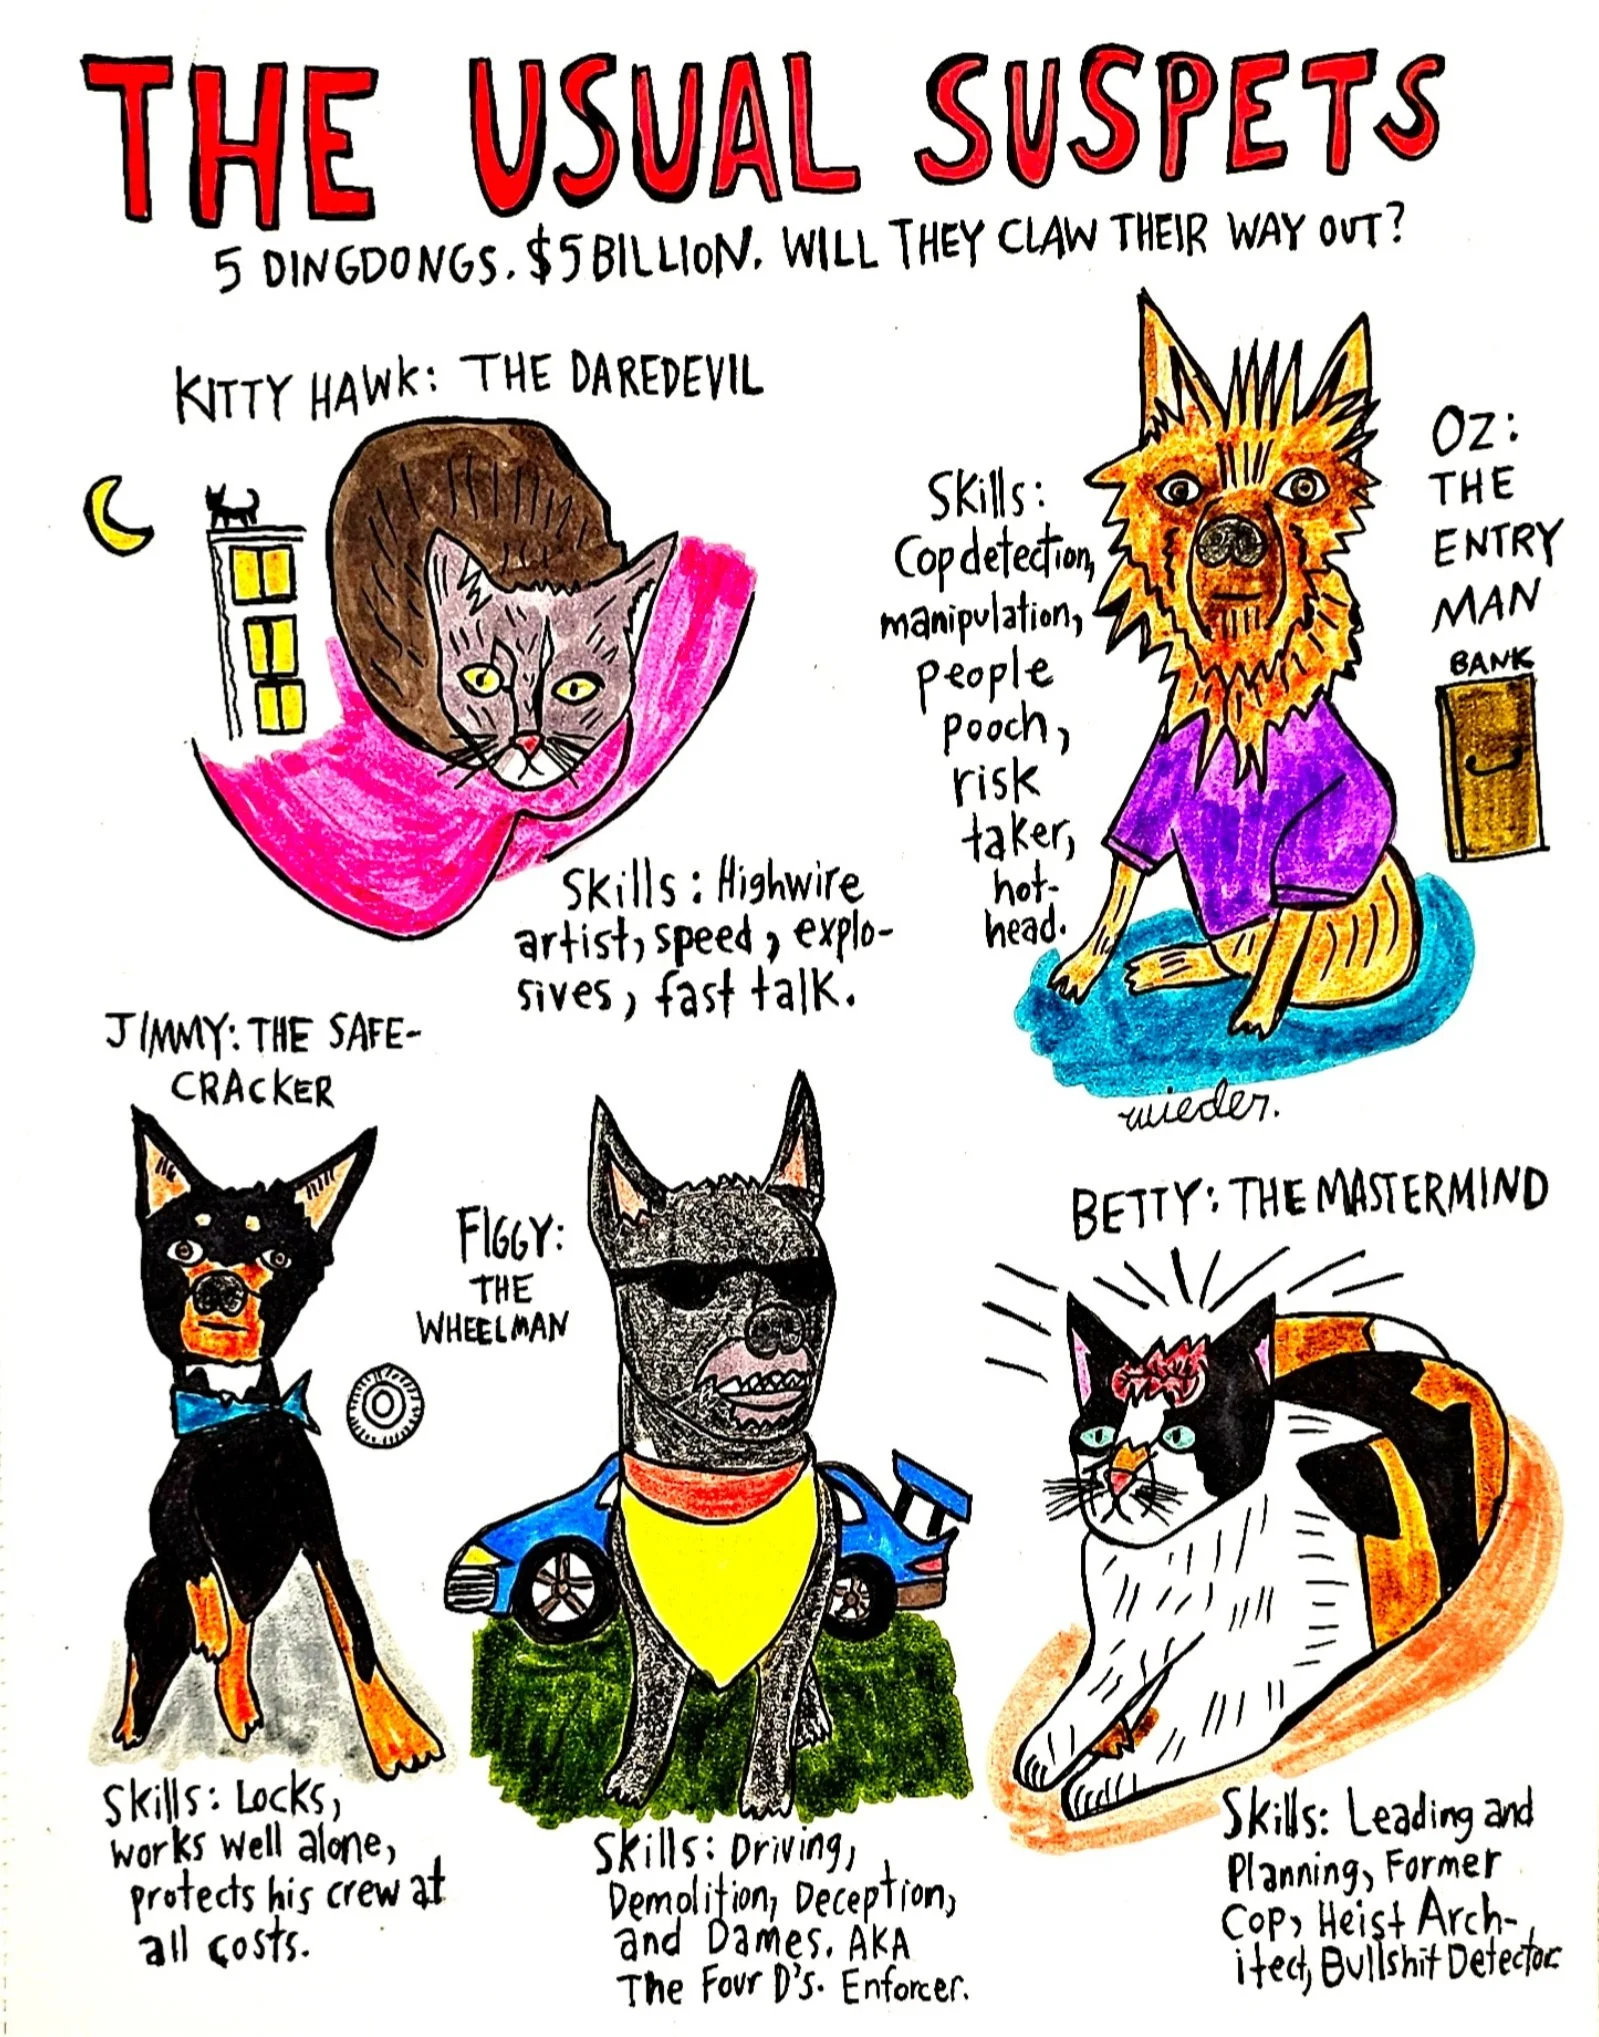 THE USUAL SUSPETS
5 DINGDONGS. $5 BILLION. WILL THEY CLAW THEIR WAY OUT?
KITTY HAWK: THE DAREDEVIL
Skills: Highwire
artist, speed, explo-
sives, fast talk.
OZ:
THE
ENTRY
MAN
BANK
Skills:
Cop detection,
manipulation,
people
pooch,
risk
taker,
hot-
head.
wieder.
JIMMY: THE SAFE-
CRACKER
Skills: Locks,
works well alone,
protects his crew at
all costs.
FIGGY:
THE
WHEELMAN
Skills: Driving,
Demolition, Deception,
and Dames. AKA
The Four D's. Enforcer.
BETTY: THE MASTERMIND
Skills: Leading and
Planning, Former
Cop, Heist Arch-
itect, Bullshit Detector